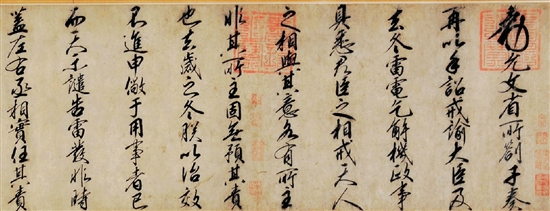 允文省所劄子奏
再以手詔戒諭大臣及
去冬雷電乞解機政事
具悉君臣之相戒天人
之相與其意各有所主
非其所主固無預其責
也去歲之冬朕以治效
不進申儆于用事者已
而天示譴告雷發非時
蓋左右丞相實任其責